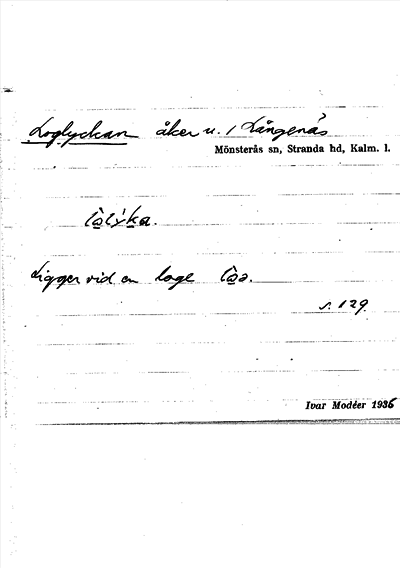 Loglyckan åker u. 1 Långenäs
Mönsterås sn, Stranda hd, Kalm. l.
Ligger vid en loge
s. 129
Ivar Modéer 1936